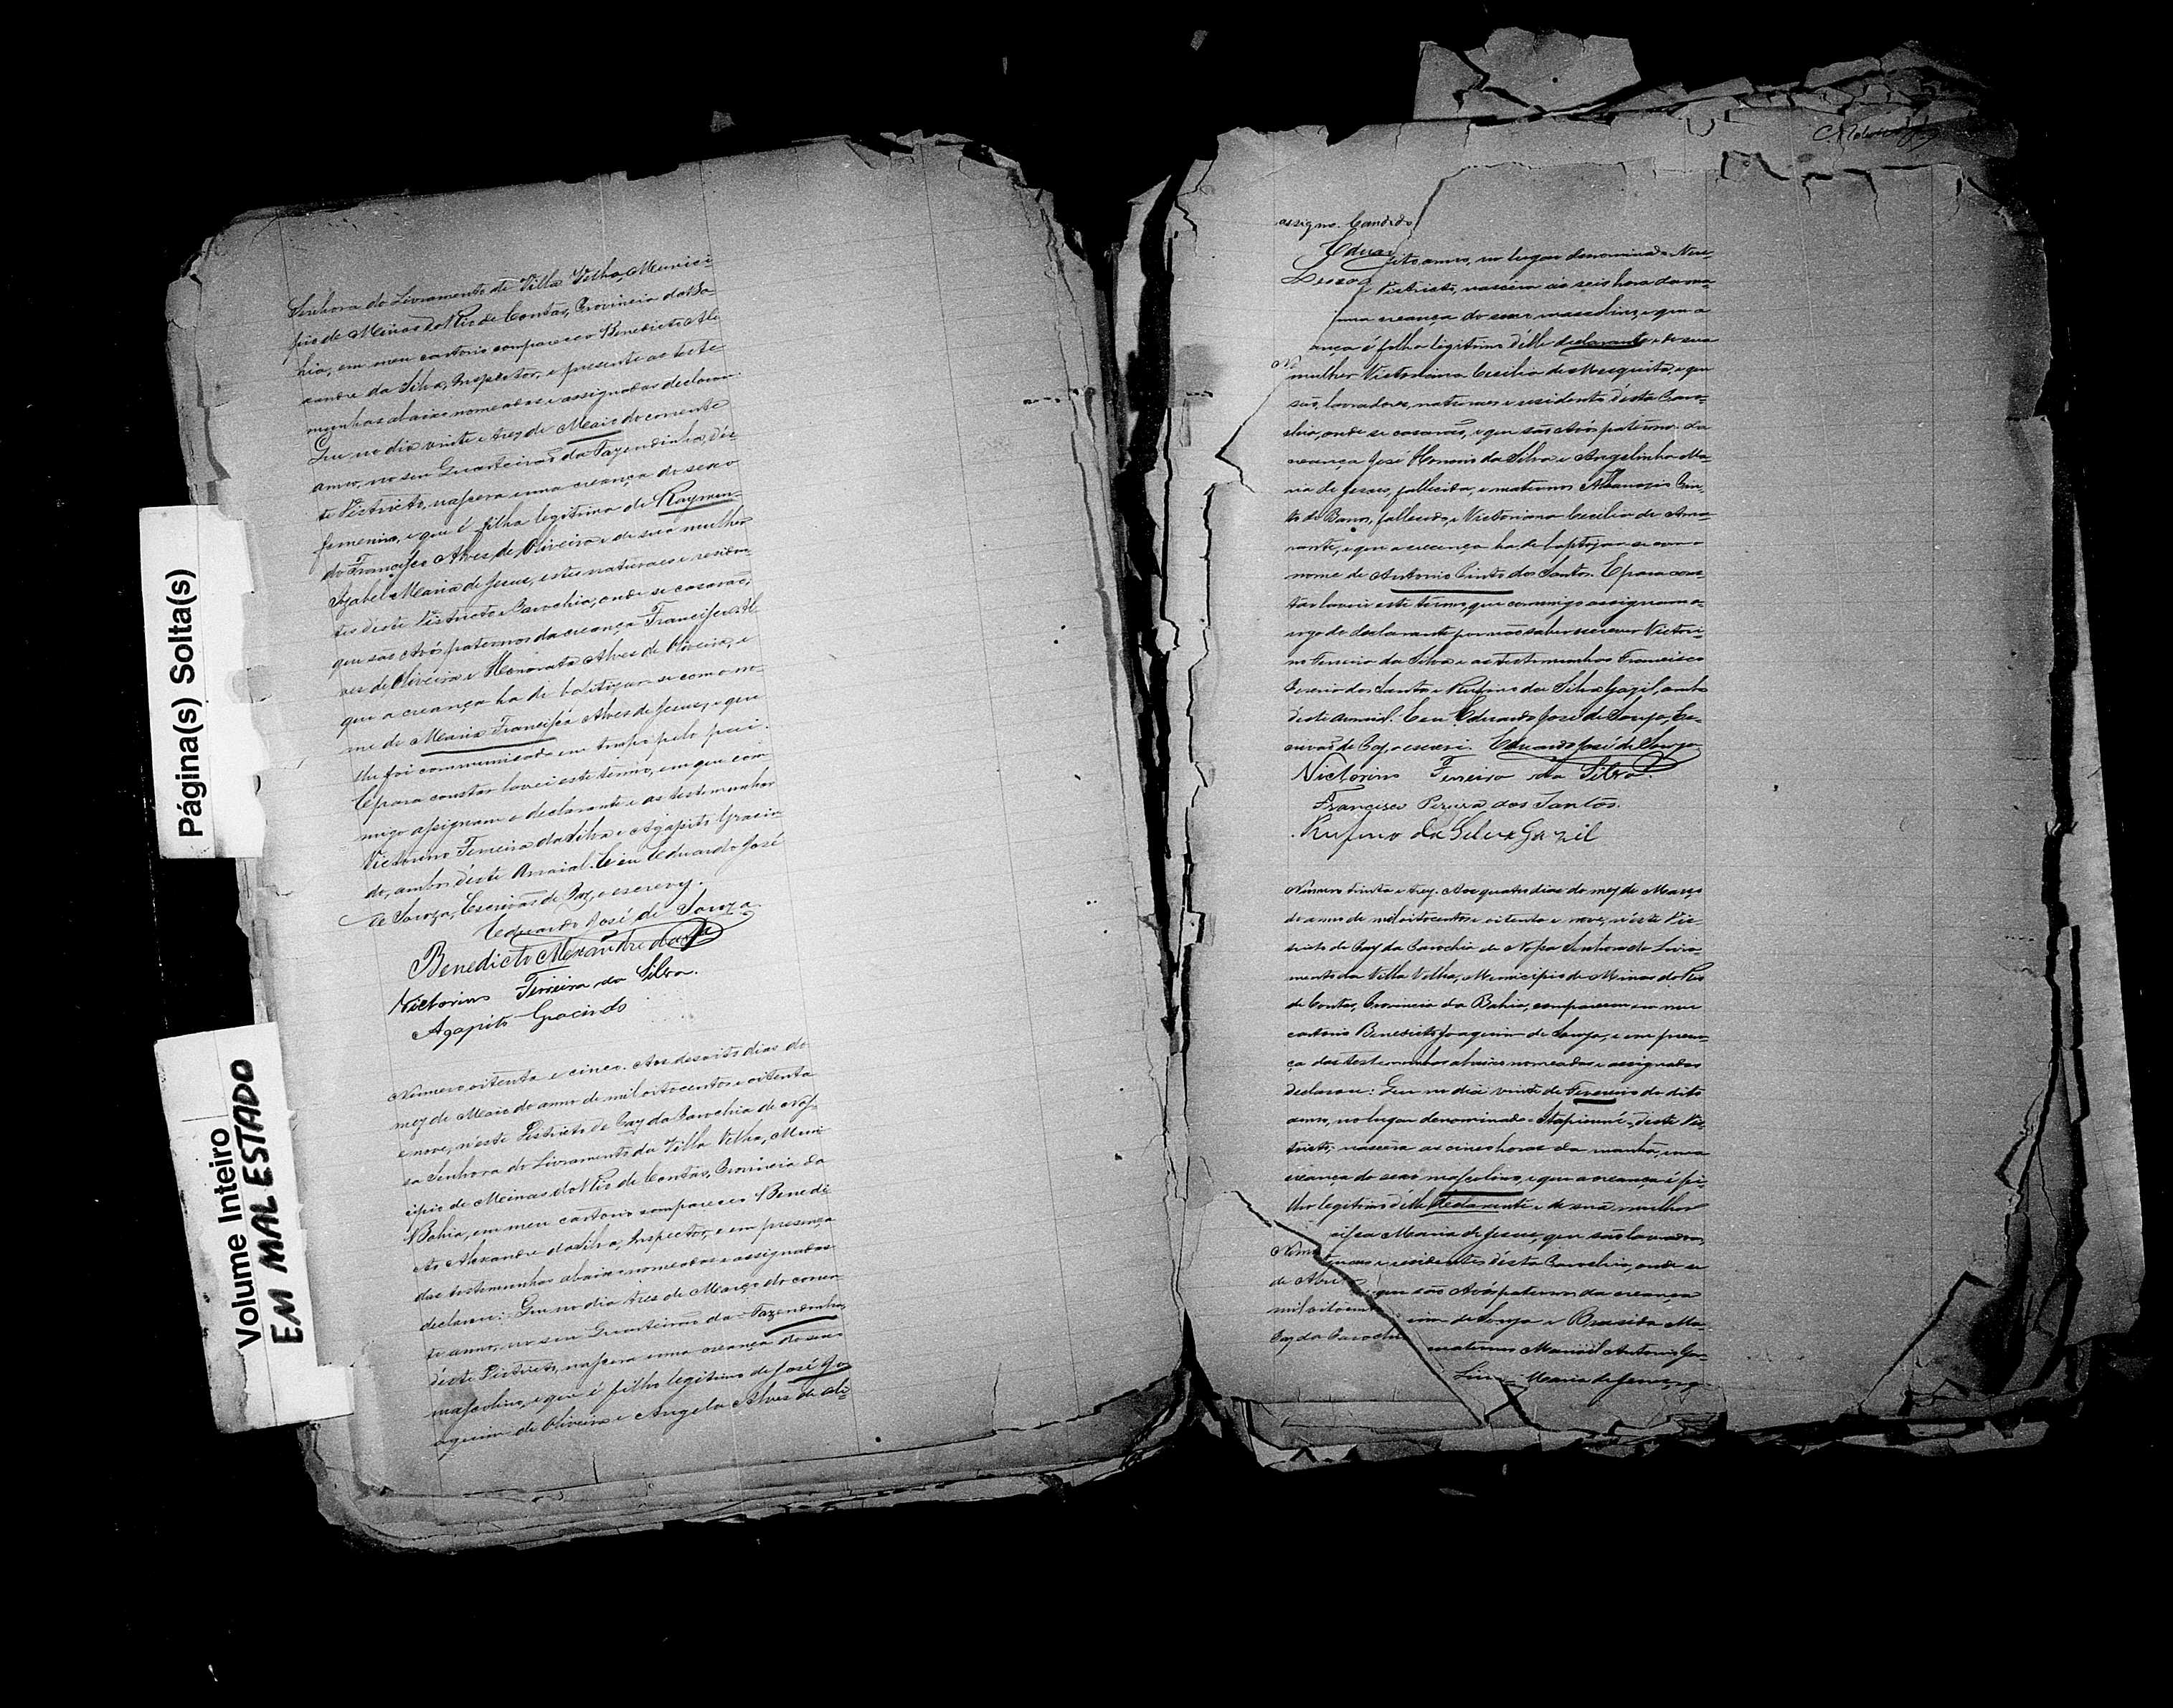 Página(s) Solta(s)
Volume Inteiro
EM MAL ESTADO
Senhora do Livramento da Villa Velha, Munici-
pio de Minas do Rio de Contas, Provincia da Ba-
hia, em meu cartorio compareceo Benedicto Ale-
xandre da Silva, Inspector, e presente as teste-
munhas abaixo nomeadas e assignadas declarou:
Que no dia vinte e trez de Maio do corrente
anno, no seu Quarteirão da Fazendinha, dés-
te Districto, nascera uma creança do sexo
femenino, e que é filha legitima de Raymun-
do Francisco Alves de Oliveira e de sua mulher
Izabel Maria de Jesus, estes naturaes e residen-
tes deste Districto e Parochia, onde se casarão,
que são Avós paternos da creança Francisco Al-
ves de Oliveira e Honorata Alves de Oliveira, e
que a creança ha de batizar-se com o no-
me de Maria Francisca Alves de Jesus, e que
lhe foi communicado em tempo pelo pai.
E para constar lavrei este termo, em que com-
migo assignam o declarante e as testemunhas
Victorino Ferreira da Silva e Agapito Gracin-
do, ambos déste Arraial. E eu Eduardo José
de Souza, Escrivão de Paz, o escrevy.
Eduardo José de Souza
Benedicto Alexandre da Sª
Victorino Ferreira da Silva.
Agapito Gracindo
Numero oitenta e cinco. Aos desoito dias do
mez de Maio do anno de mil oitocentos e oitenta
e nove, n'este Districto de Paz da Parochia de Nos-
sa Senhora do Livramento da Villa Velha, Muni-
cipio de Minas do Rio de Contas, Provincia da
Bahia, em meu cartorio compareceo Benedi-
cto Alexandre da Silva, Inspector, e em presença
das testemunhas abaixo nomeadas e assignadas
declarou: Que no dia tres de Março do corren-
te anno, no seu Quarteirão da Fazendinha,
déste Districto, nascera uma creança do sexo
mascolino, e que é filho legitimo de José Jo-
aquim de Oliveira e Angela Alves de Oli-
assigno. Candido
Eduar dito anno, no lugar denominado
Districto, nascera ás seis hora da ma-
uma creança do sexo masculino, e que a
ança é filho legitimo d'élle declarante e de sua
mulher Victoriana Cecilia de Mesquita, e que
são lavradores, naturaes e residentes d'ésta Paro-
chia, onde se casarão, e que são Avós paternos da
creança José Honorio da Silva e Angelinha Ma-
ria de Jesus, fallecida, e maternos Athanazio Pin-
to de Barros, fallecido, e Victoriana Cecilia de Ama-
rante, e que a creança ha de baptizar-se com o
nome de Antonio Pinto dos Santos. E para cons-
tar lavrei este termo, que commigo assignam a
rogo do declarante por não saber escrever Victori-
no Ferreira da Silva e as testemunhas Francisco
Pereira dos Santos e Rufino da Silva Gazil, ambos
déste Arraial. E eu Eduardo José de Souza, Es-
crivão de Paz, o escrevi. Eduardo José de Souza
Victorino Ferreira da Silva.
Francisco Pereira dos Santos.
Rufino da Silva Gazil
Numero trinta e trez. Aos quatro dias do mez de Março
do anno de mil oitocentos e oitenta e nove, n'éste Dis-
tricto de Paz da Parochia de Nossa Senhora do Livra-
mento da Villa Velha, Municipio de Minas do Rio
de Contas, Provincia da Bahia, compareceu em meu
cartorio Benedicto Joaquim de Souza, e em presen-
ça das testemunhas abaixo nomeadas e assignadas
declarou: Que no dia vinte de Fevereiro do dito
anno, no lugar denominado Itapicurú, d'este Dis-
tricto, nascera as cinco horas da manhã, uma
creança do sexo mascolino, e que a creança é fi-
lho legitimo d'élle declarante e de sua mulher
Maria de Jesus, que são lavradores,
e residentes d'ésta Parochia, onde se
de Abri que são Avós paternos da creança
mil oitocent de Souza e Brasida Ma-
Paz da Parochi maternos Manoel Antonio
Maria de Jesus, e q